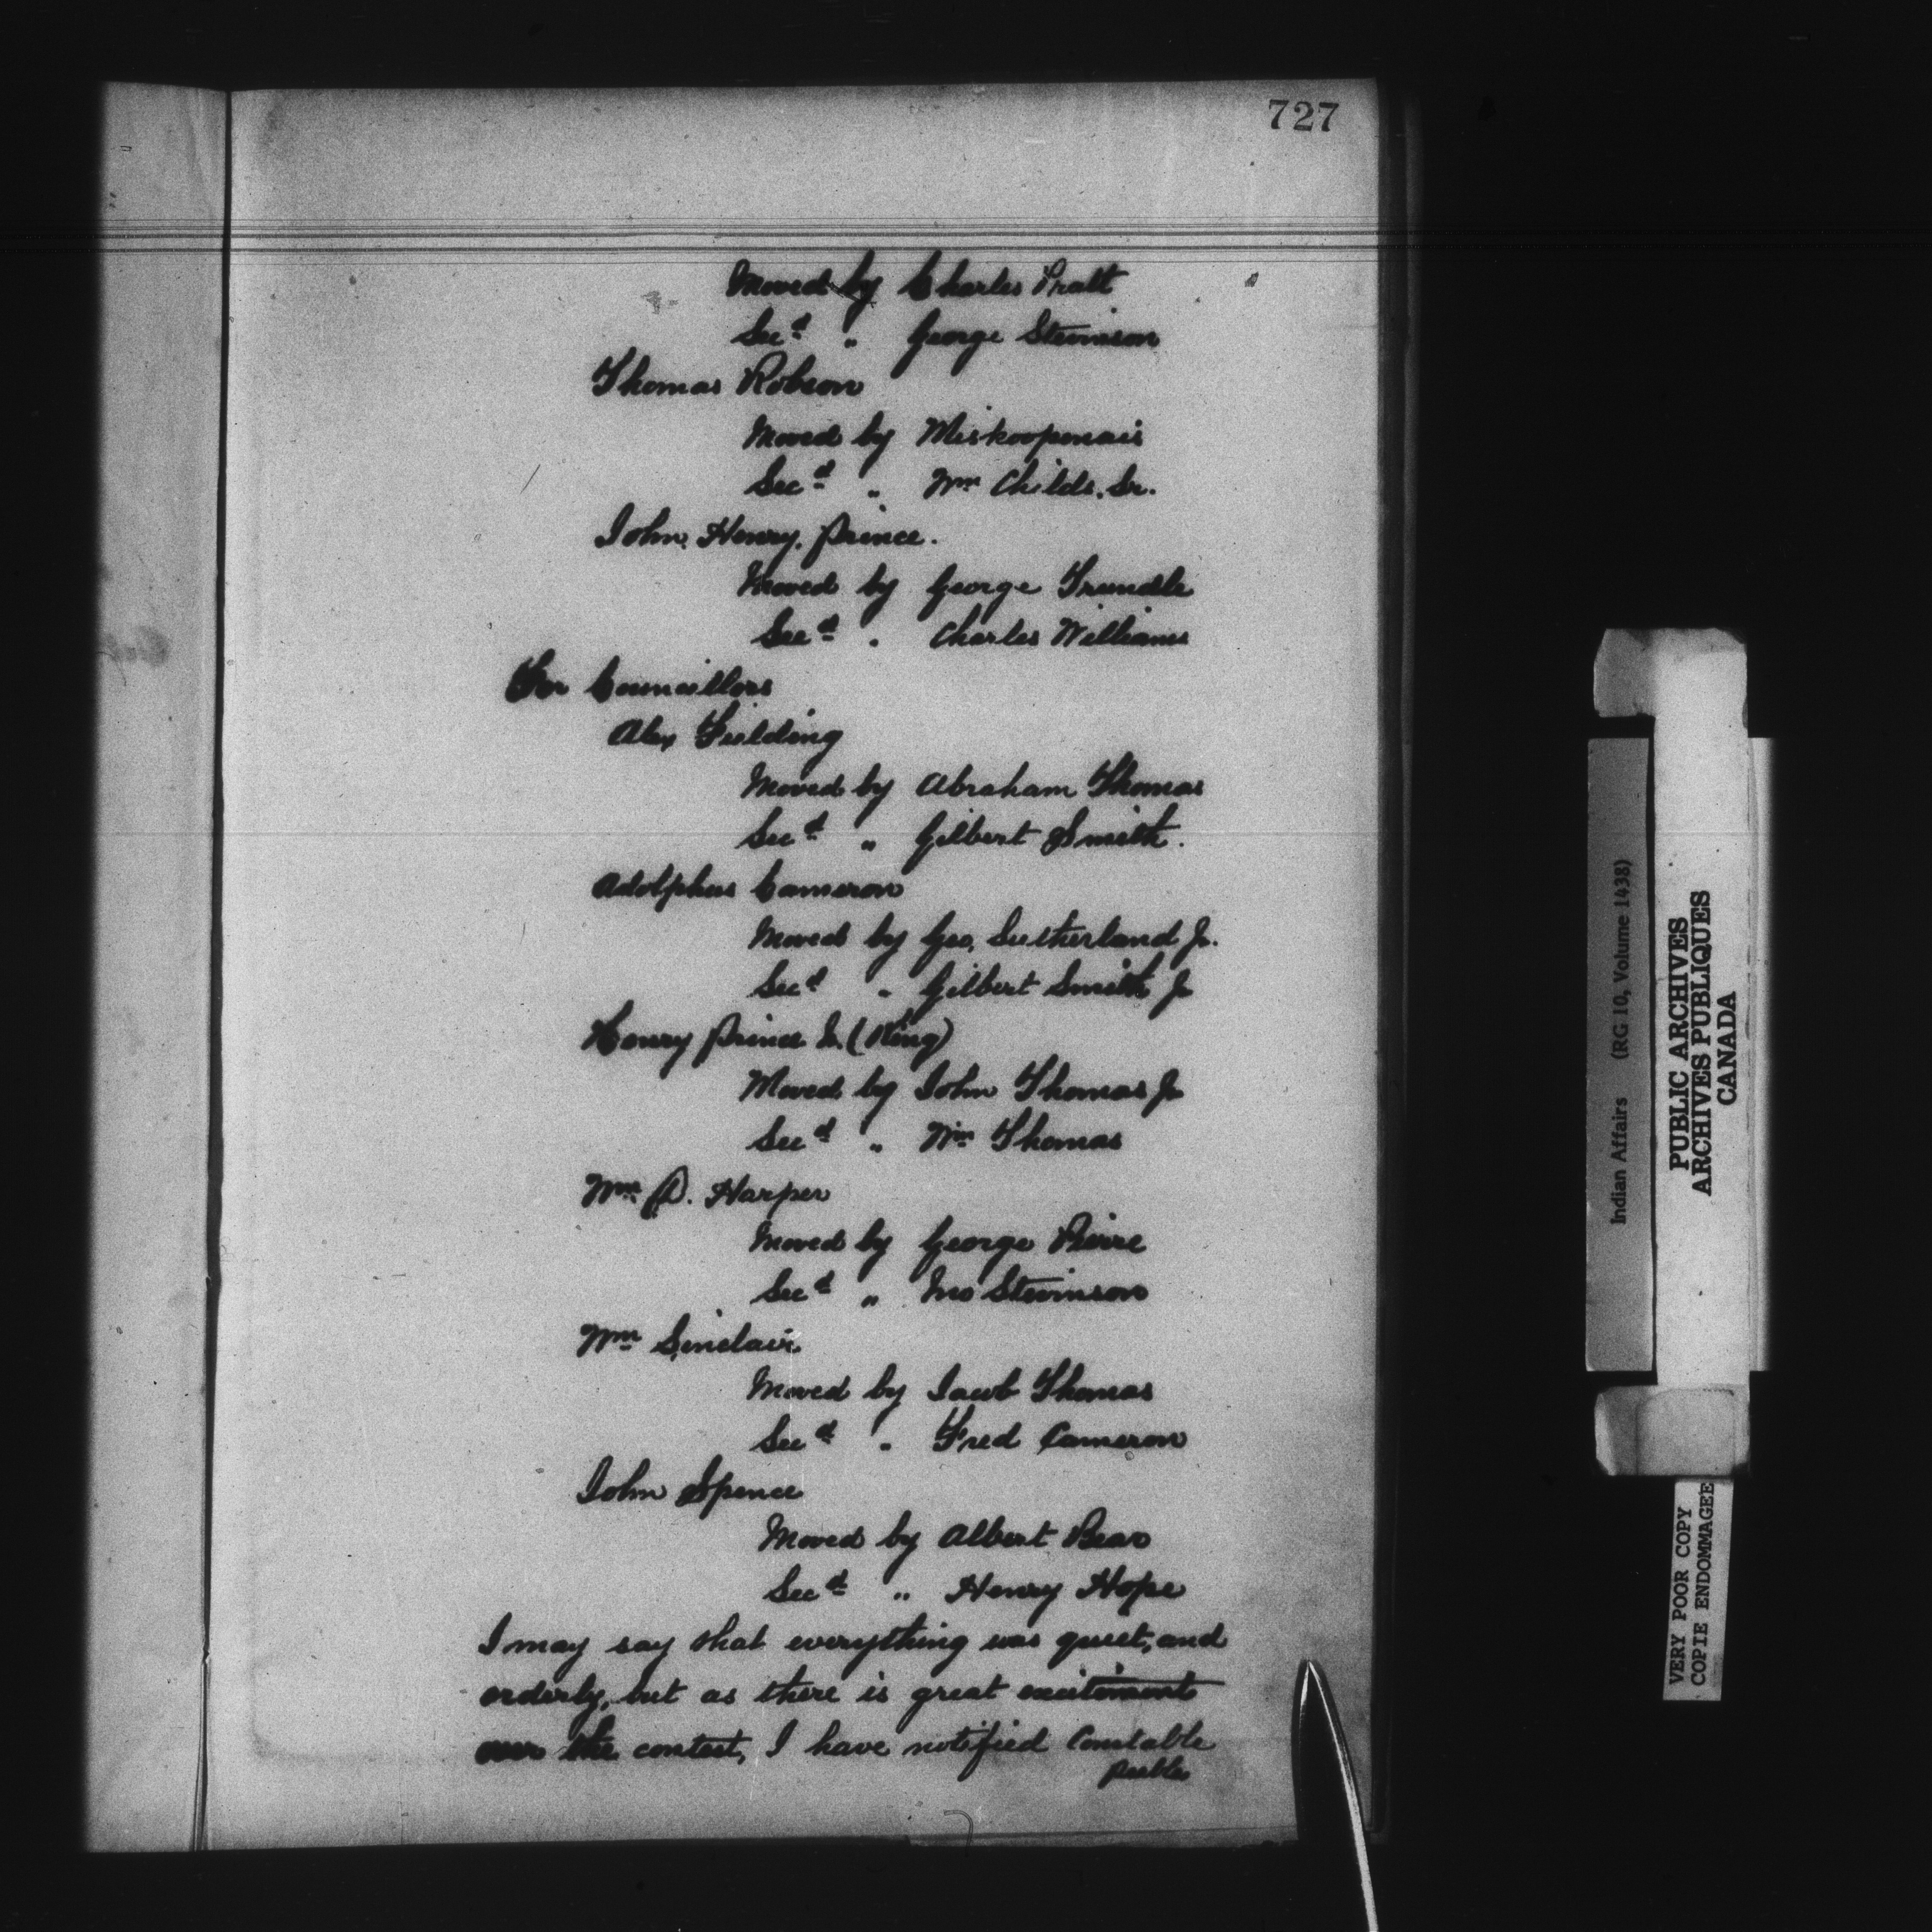 727
Moved by Charles Pratt
Secd " George Stevenson
Thomas Robson
Moved by Miskoopenais
Secd " Wm Childs. Sr.
John. Henry. Prince.
Moved by George Trundle
Secd " Charles Williams
For Councillors
Alex Fielding
Moved by Abraham Thomas
Secd " Gilbert Smith.
Adolphus Cameron
Moved by Geo, Sutherland Jr.
Secd " Gilbert Smith Jr
Henry Prince Sr. (King)
Moved by John Thomas Jr
Secd " Wm Thomas
Wm D. Harper
Moved by George Pierre
Secd " Jno Stevenson
Wm Sinclair
Moved by Jacob Thomas
Secd " Fred Cameron
John Spence
Moved by Albert Bear
Secd " Henry Hope
I may say that everything was quiet, and
orderly, but as there is great excitement
over the contest, I have notified Constable
Peebles
Indian Affairs (RG 10, Volume 1438)
PUBLIC ARCHIVES
ARCHIVES PUBLIQUES
CANADA
VERY POOR COPY
COPIE ENDOMMAGEE